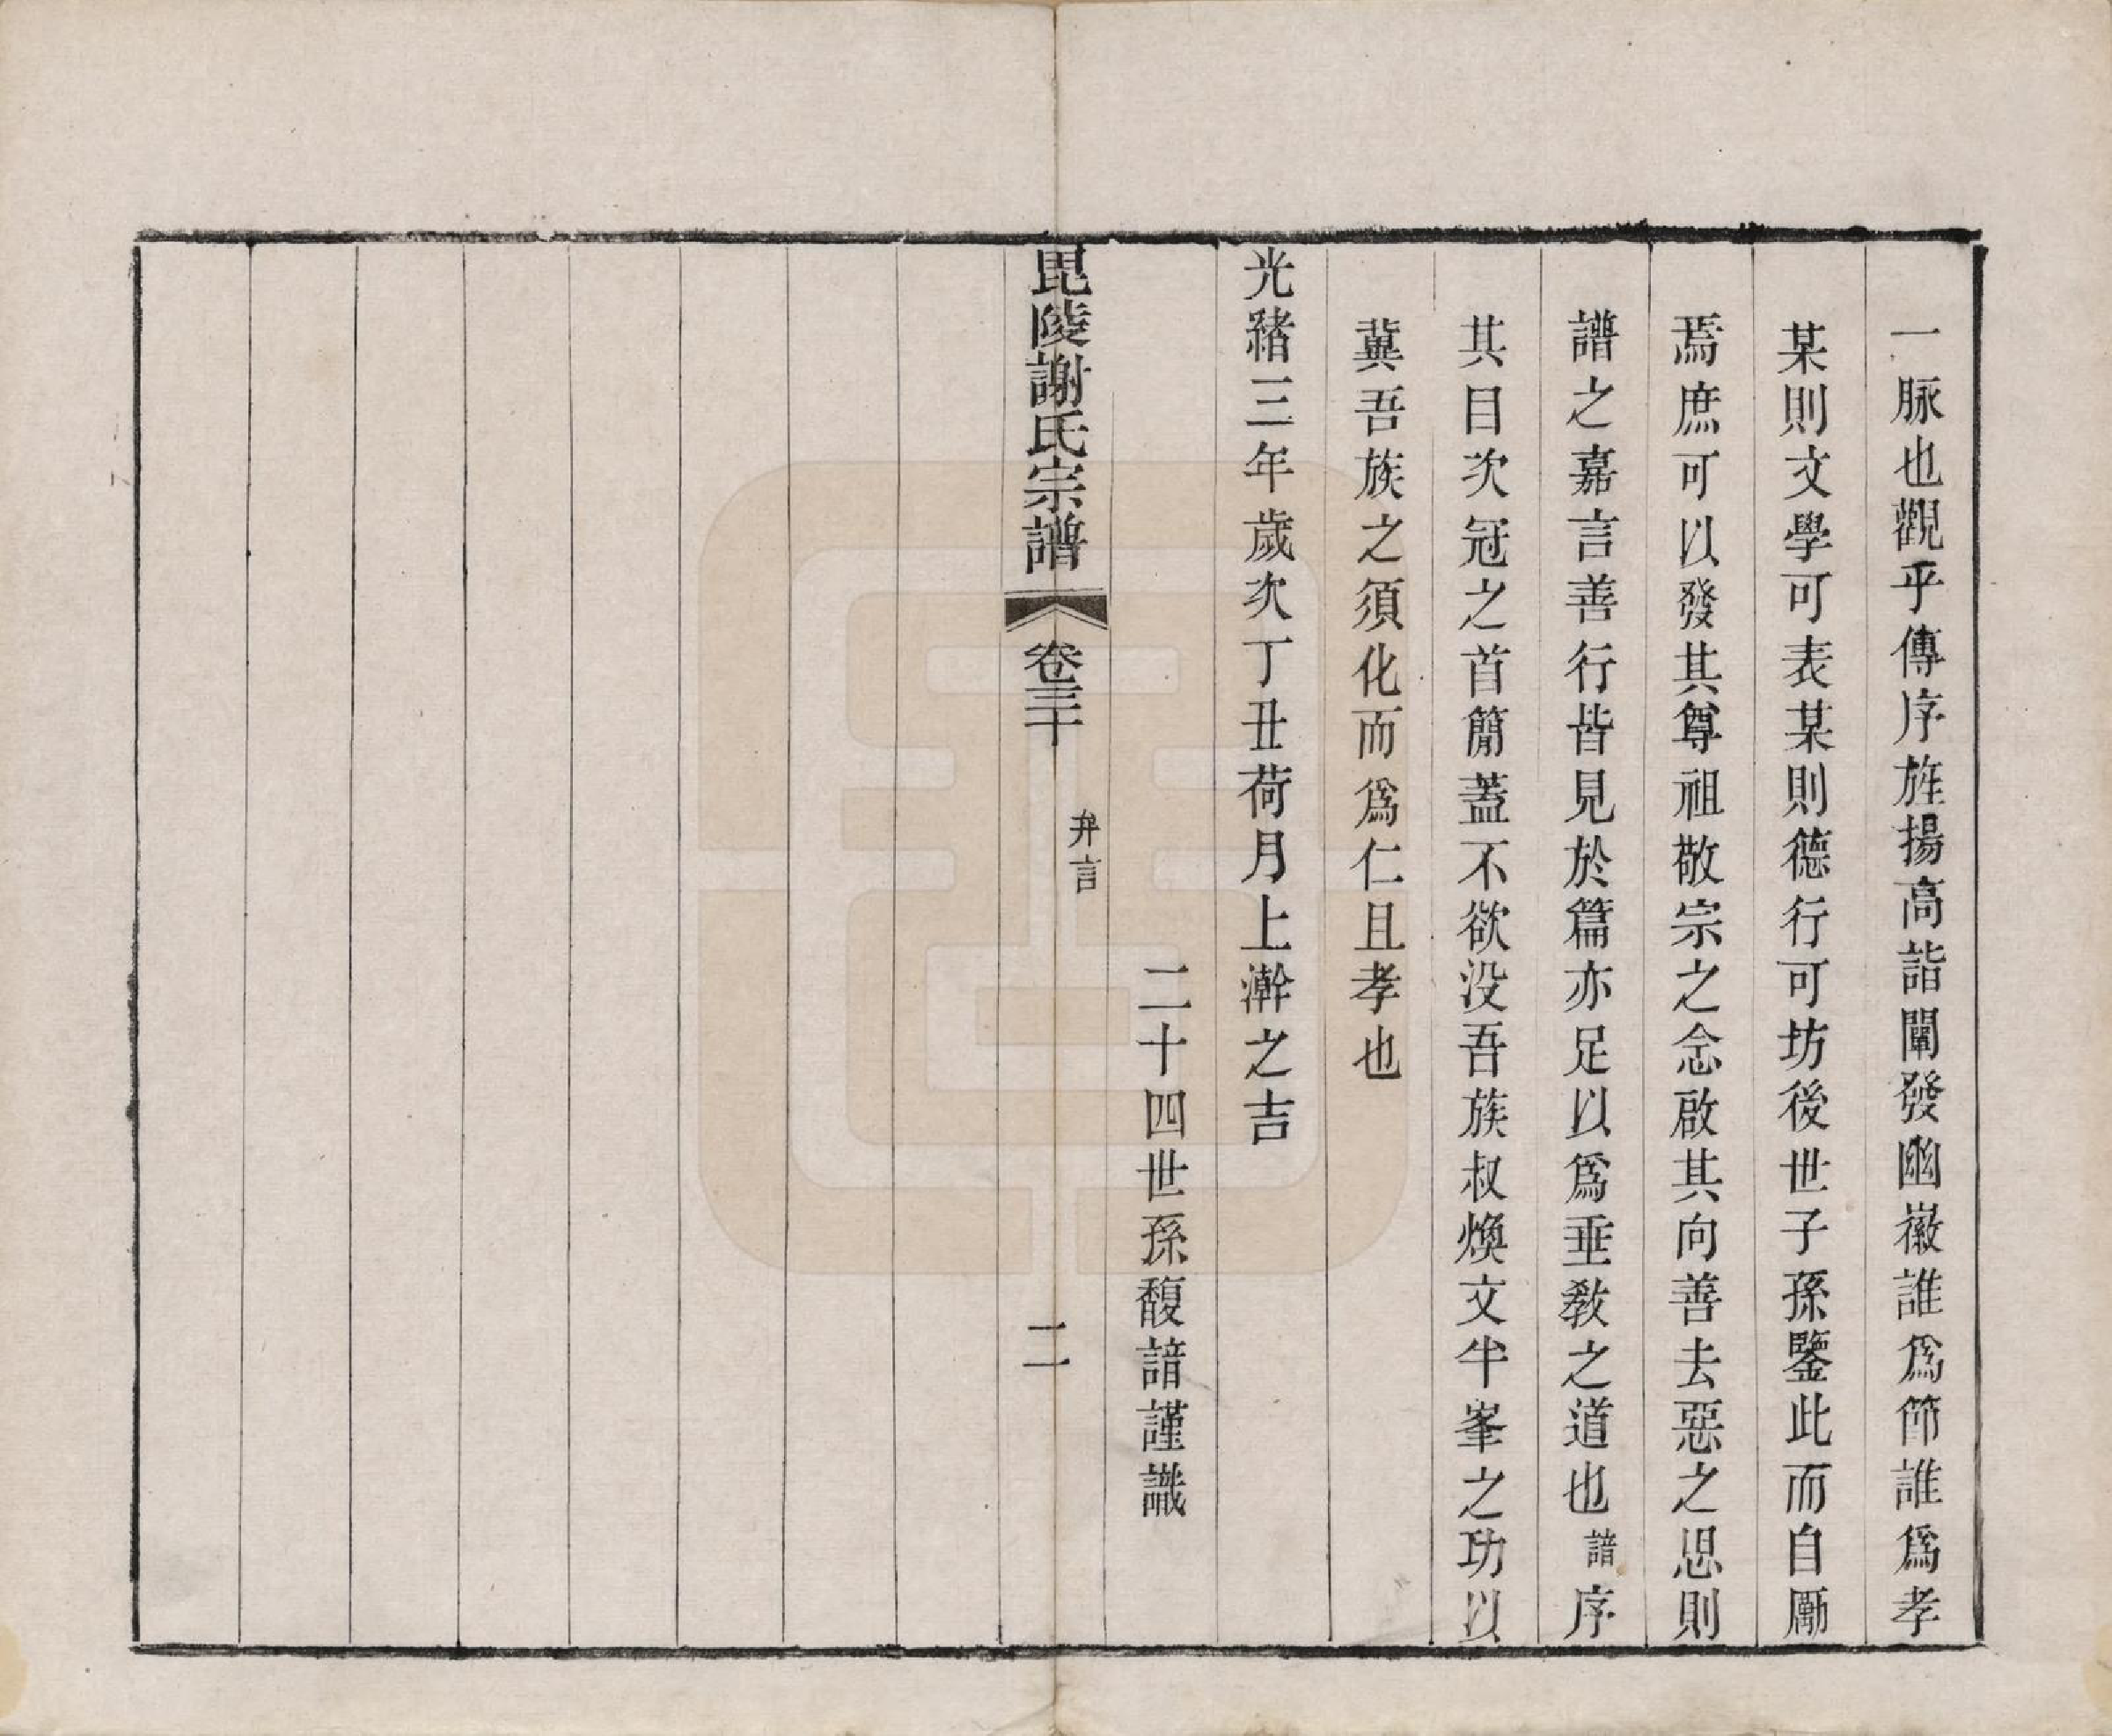 一脉也觀乎傳序旌揚高詣闡發幽徽誰爲節誰爲孝
某則文學可表某則德行可坊後世子孫鑒此而自厲
焉庶可以發其尊祖敬宗之念啟其向善去惡之思則
譜之嘉言善行皆見於篇亦足以爲垂敎之道也諳序
其目次冠之首簡蓋不欲没吾族叔煥文半峯之功以
冀吾族之須化而爲仁且孝也
光緒三年歲次丁丑荷月上澣之吉
二十四世孫馥諳謹識
毘陵謝氏宗譜
卷三十
弁言
二